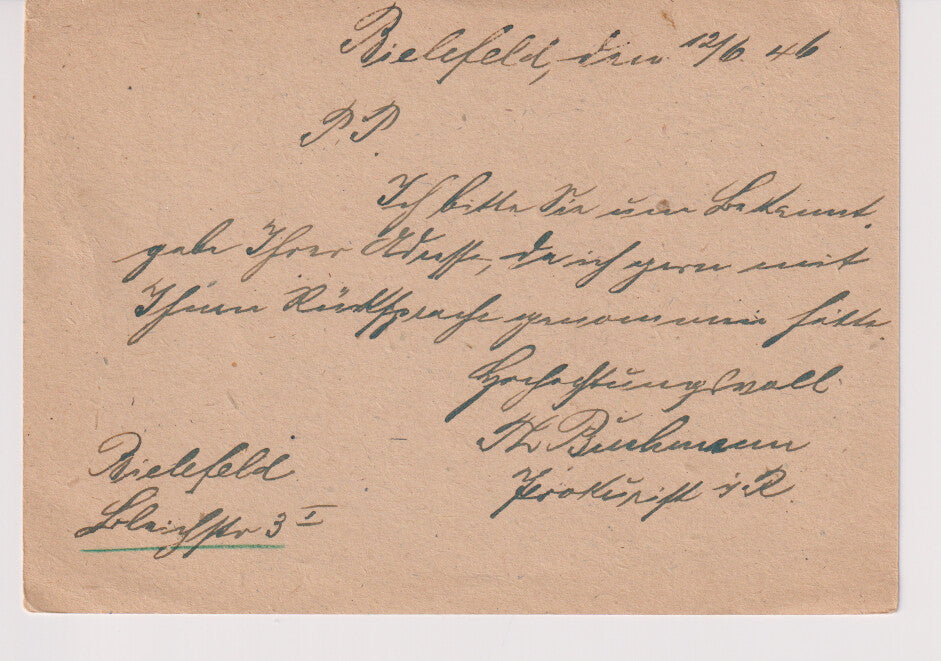 Bielefeld, den 12/6. 46
P.P.
Ich bitte Sie um Bekannt-
gabe Ihrer Adresse, da ich gern mit
Ihnen Rücksprache genommen hätte
Hochachtungsvoll
Th Buchmann
Prokurist i.R.
Bielefeld
Bleichstr 3 I